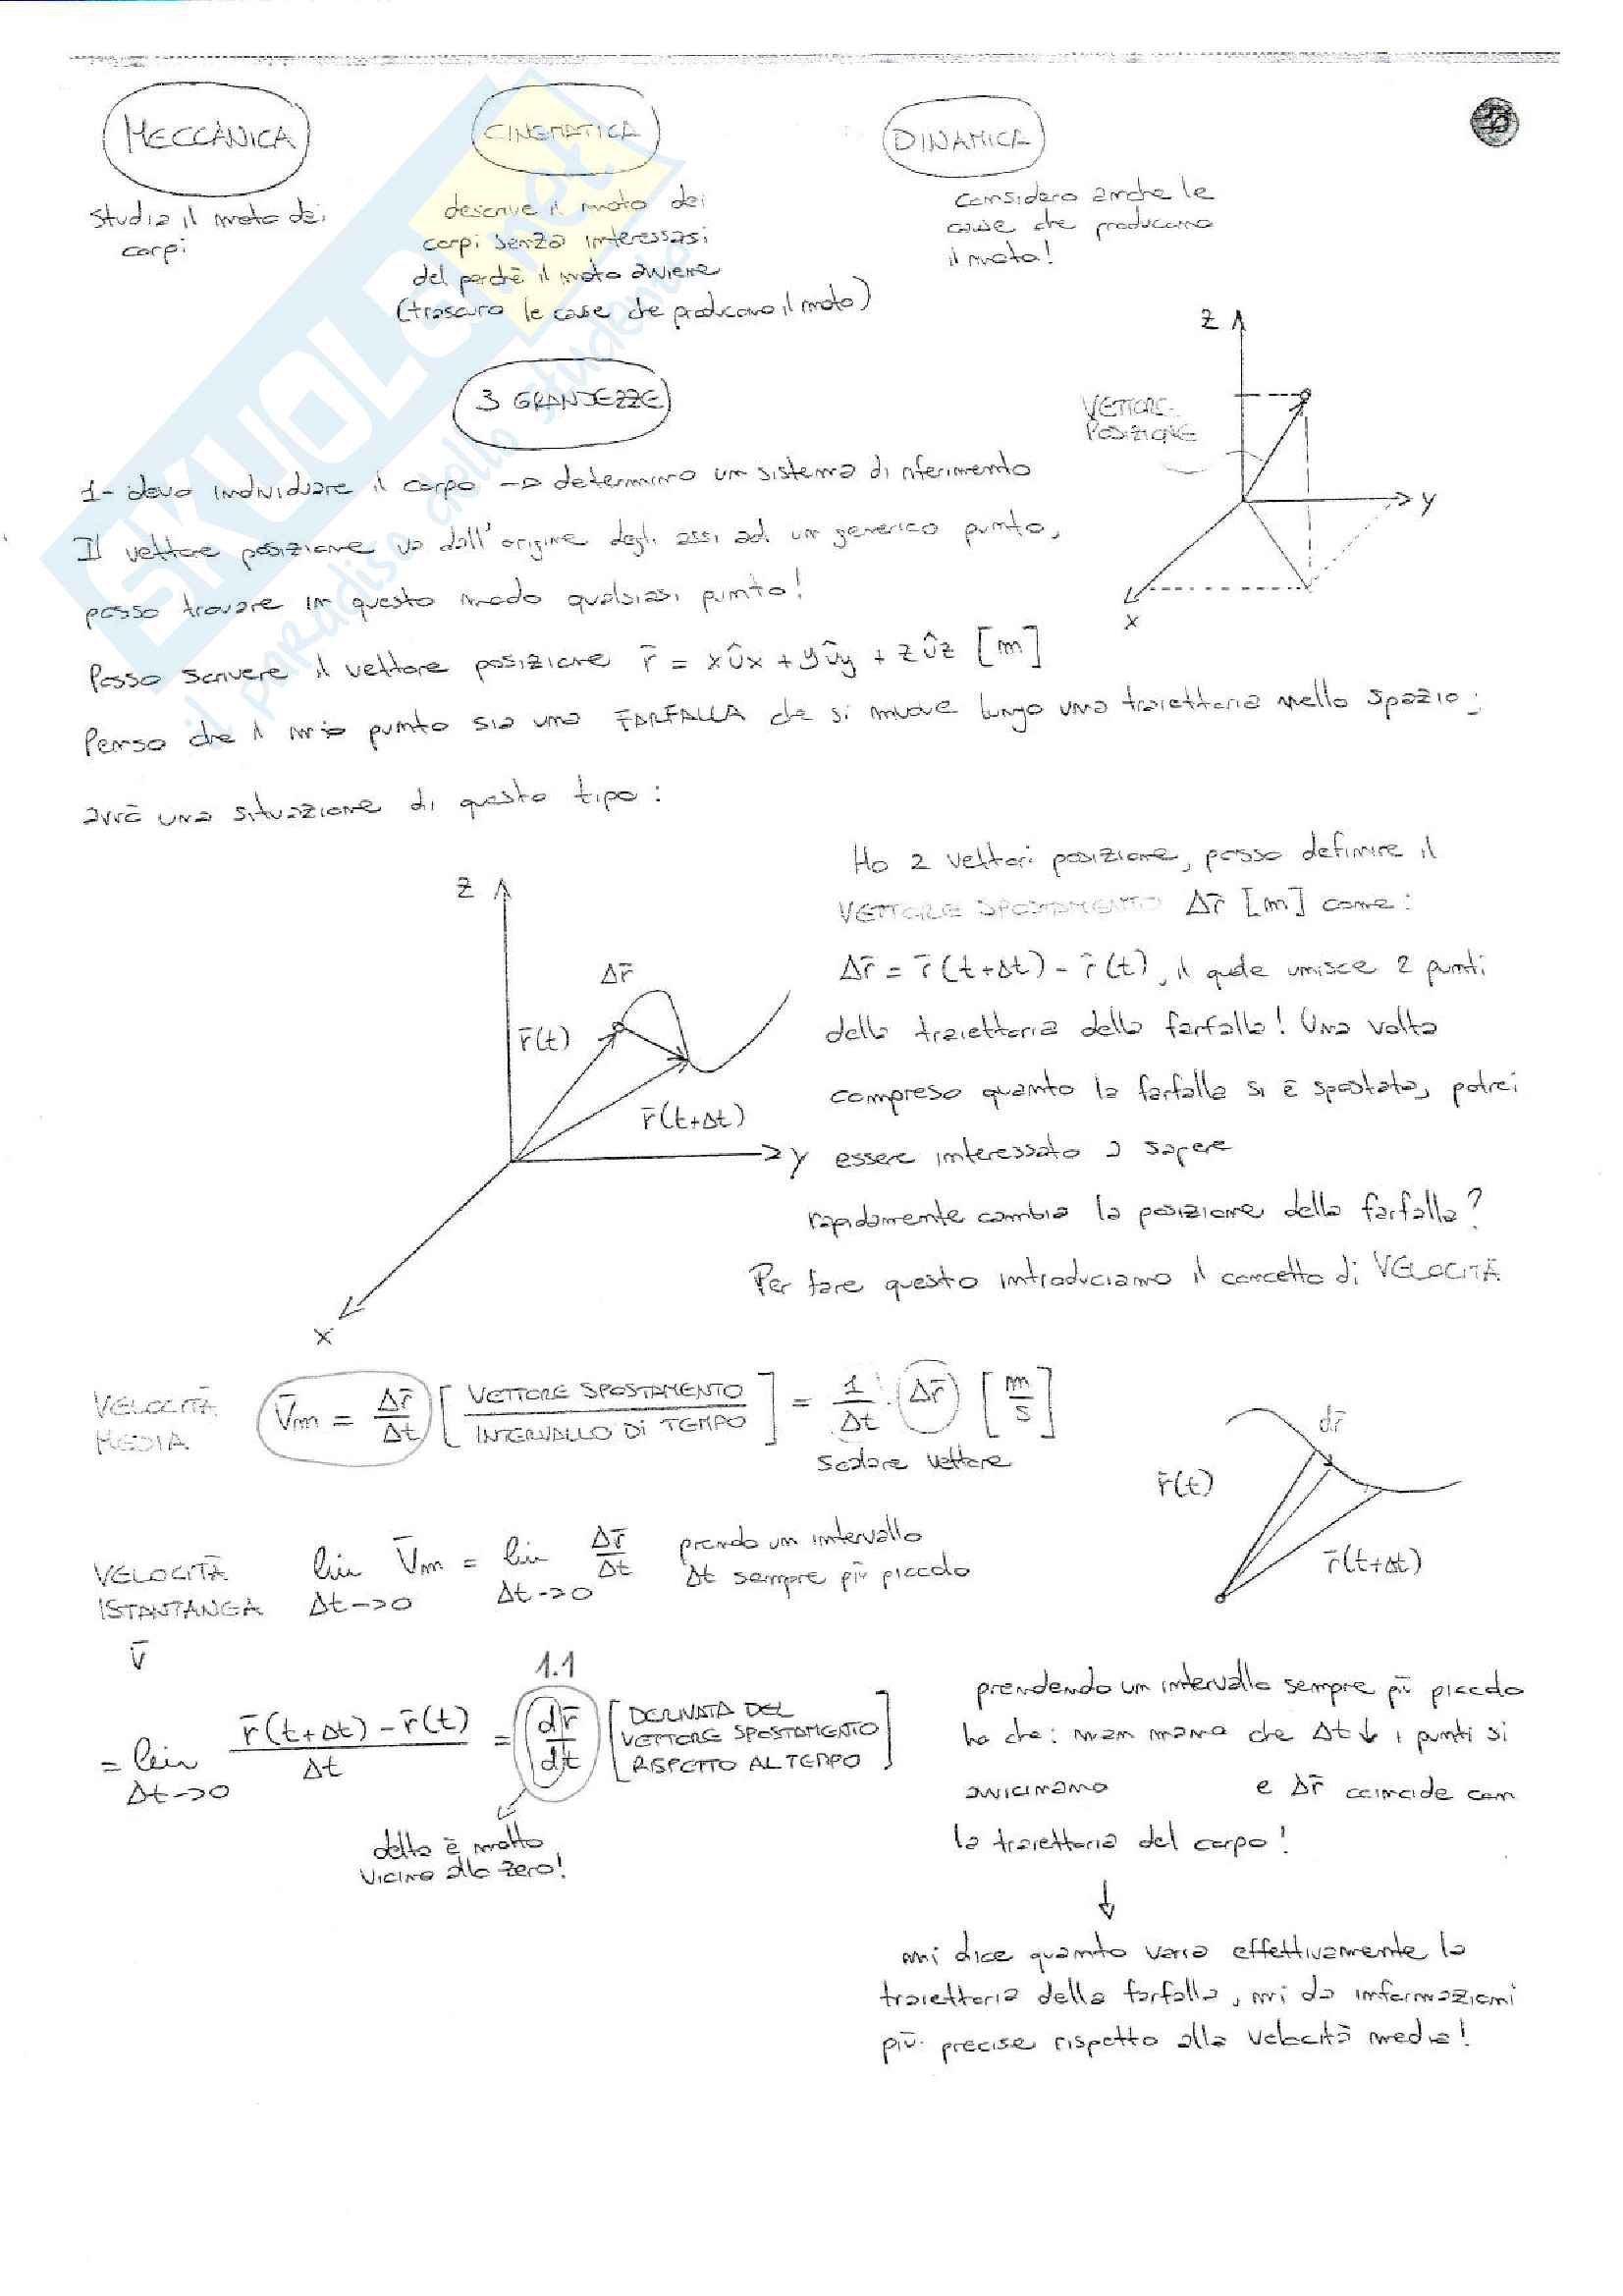 MECCANICA
studia il moto dei
corpi
CINEMATICA
descrive il moto dei
corpi senza interessasi
del perchè il moto avviene
(trascuro le cause che producono il moto)
DINAMICA
considero anche le
cause che producono
il moto!
3 GRANDEZZE
z
VETTORE
POSIZIONE
y
x
1- devo individuare il corpo → determino un sistema di riferimento
Il vettore posizione va dall'origine degli assi ad un generico punto,
posso trovare in questo modo qualsiasi punto!
Posso scrivere il vettore posizione r̄ = xûx + yûy + zûz [m]
Penso che il mio punto sia una FARFALLA che si muove lungo una traiettoria nello spazio;
avrò una situazione di questo tipo:
z
Δr̄
r̄(t)
r̄(t+Δt)
y
x
Ho 2 vettori posizione, posso definire il
VETTORE SPOSTAMENTO Δr̄ [m] come:
Δr̄ = r̄(t+Δt) - r̄(t), il quale unisce 2 punti
della traiettoria della farfalla! Una volta
compreso quanto la farfalla si è spostata, potrei
essere interessato a sapere
rapidamente cambia la posizione della farfalla?
Per fare questo introduciamo il concetto di VELOCITÀ
VELOCITÀ
MEDIA
V̄m = Δr̄/Δt [VETTORE SPOSTAMENTO / INTERVALLO DI TEMPO] = 1/Δt · Δr̄ [m/s]
scalare vettore
dr̄
r̄(t)
r̄(t+Δt)
VELOCITÀ
ISTANTANEA
v̄
lim Δt→0 V̄m = lim Δt→0 Δr̄/Δt
prendo un intervallo
Δt sempre più piccolo
1.1
= lim Δt→0 r̄(t+Δt) - r̄(t) / Δt = dr̄/dt [DERIVATA DEL
VETTORE SPOSTAMENTO
RISPETTO AL TEMPO]
delta è molto
vicino allo zero!
prendendo un intervallo sempre più piccolo
ho che: man mano che Δt↓ i punti si
avvicinano e Δr̄ coincide con
la traiettoria del corpo!
↓
mi dice quanto varia effettivamente la
traiettoria della farfalla, mi da informazioni
più precise rispetto alla velocità media!
SKUOLA.net
il paradiso dello studente